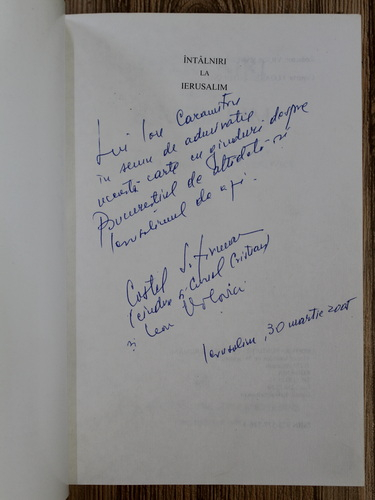 ÎNTÂLNIRI
LA
IERUSALIM
Lui Ion Caramitru
în semn de admirație
această carte cu gînduri despre
Bucureștiul de altădată și
Ierusalimul de azi.
Costel
și Leon Volovici
Ierusalim, 30 martie 2005